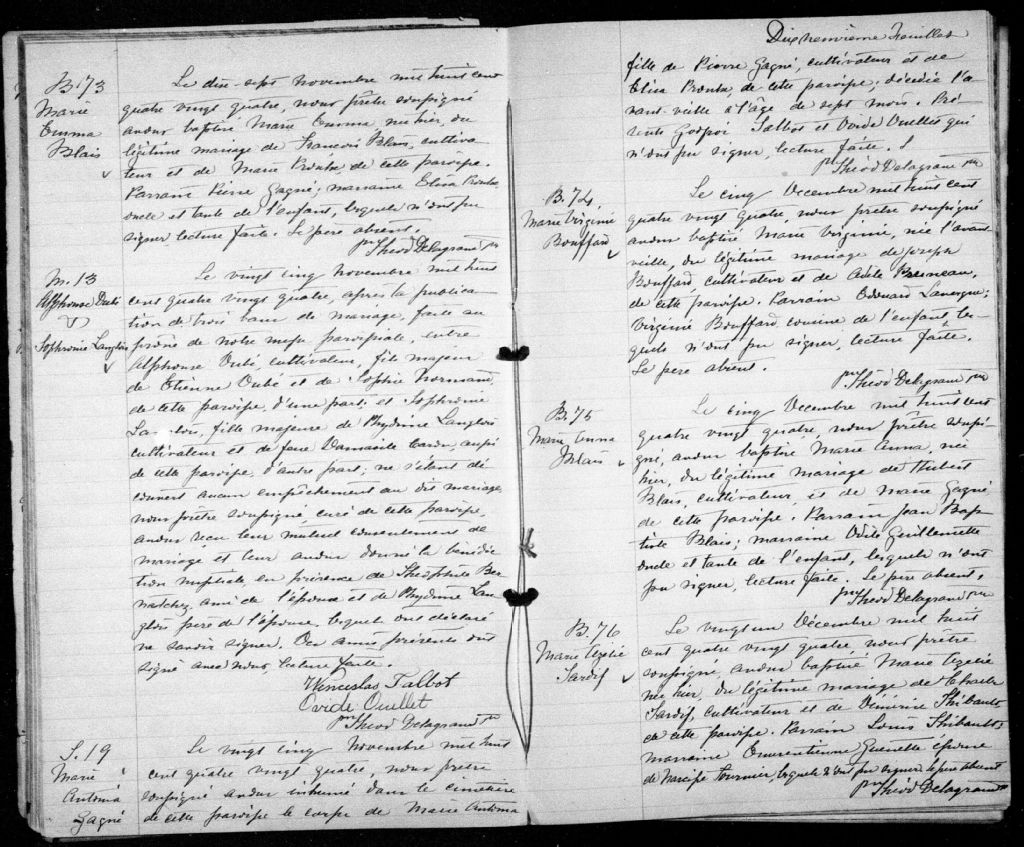 B 73
Marie
Emma
Blais
Le dix-sept novembre mil huit cent
quatre vingt quatre, nous prêtre soussigné
avons baptisé Marie Emma née hier, du
légitime mariage de François Blais, cultiva-
teur et de Marie Proulx, de cette paroisse.
Parrain Pierre Gagné; marraine Eliza Proulx,
oncle et tante de l'enfant, lesquels n'ont pu
signer lecture faite. Le père absent.
Théod Delagrave ptre
M. 13
Alphonse Dubé
Sophronie Langlois
Le vingt cinq novembre mil huit
cent quatre vingt quatre, après la publica-
tion de trois bans de mariage, faite au
prône de notre messe paroissiale, entre
Alphonse Dubé, cultivateur, fils majeur
de Etienne Dubé et de Sophie Normand,
de cette paroisse, d'une part; et Sophronie
Langlois, fille majeure de Phydime Langlois
cultivateur et de feue Domicile Caron aussi
de cette paroisse, d'autre part; ne s'étant dé-
couvert aucun empêchement au dit mariage,
nous prêtre soussigné curé de cette paroisse,
avons reçu leur mutuel consentement de
mariage et leur avons donné la bénédic-
tion nuptiale, en présence de Théophile Ber-
natchez, ami de l'époux et de Phydime Lan-
glois père de l'épouse, lesquels ont déclaré
ne savoir signer. Des amis présents ont
signé avec nous, lecture faite.
Wenceslas Talbot
Ovide Ouellet
Théod Delagrave ptre
S. 19
Marie
Antonia
Gagné
Le vingt cinq novembre mil huit
cent quatre vingt quatre, nous prêtre
soussigné avons inhumé dans le cimetière
de cette paroisse le corps de Marie Antonia
Dix neuvième Feuillet
fille de Pierre Gagné, cultivateur et de
Eliza Proulx, de cette paroisse; décédée l'a-
vant-veille à l'âge de sept mois. Pré-
sents Talbot et Ovide Ouellet qui
n'ont pu signer, lecture faite.
Théod Delagrave ptre
B. 74
Marie Virginie
Bouffard
Le cinq Decembre mil huit cent
quatre vingt quatre, nous prêtre soussigné
avons baptisé Marie Virginie, née l'avant
veille, du légitime mariage de Joseph
Bouffard cultivateur et de Adèle Bruneau,
de cette paroisse. Parrain Edouard Lavergne;
Virginie Bouffard cousine de l'enfant les-
quels n'ont pu signer, lecture faite.
Le père absent.
Théod Delagrave ptre
B. 75
Marie Anna
Blais
Le cinq Decembre mil huit cent
quatre vingt quatre, nous prêtre soussi-
gné, avons baptisé Marie Anna, née
hier, du légitime mariage de Hubert
Blais, cultivateur, et de Marie Gagné
de cette paroisse. Parrain Jean Bap-
tiste Blais; marraine Odile Guillemette
oncle et tante de l'enfant, lesquels n'ont
pu signer, lecture faite. Le père absent.
Théod Delagrave ptre
B. 76
Marie Azelie
Tardif
Le vingt un Décembre mil huit
cent quatre vingt quatre nous prêtre
soussigné, avons baptisé Marie Azelie
née hier, du légitime mariage de Charles
Tardif, cultivateur et de Démérise Thibault
de cette paroisse. Parrain Louis Thibault;
marraine Emérentienne épouse
de Narcisse Fournier, lesquels n'ont pu signer le père absent
Théod Delagrave ptre